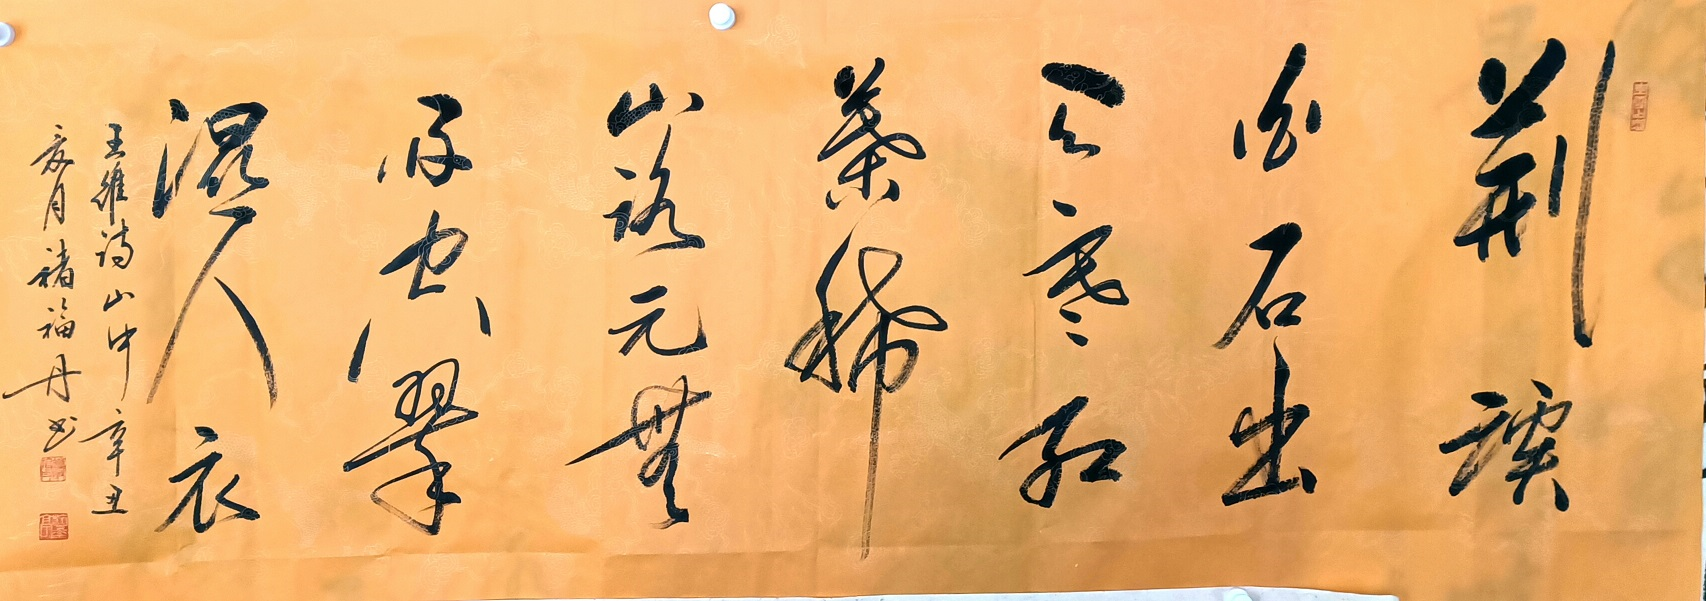 荆溪
白石出
天寒红
葉稀
山路元無
雨空翠
湿人衣
王維诗山中辛丑
夏月褚福丹书